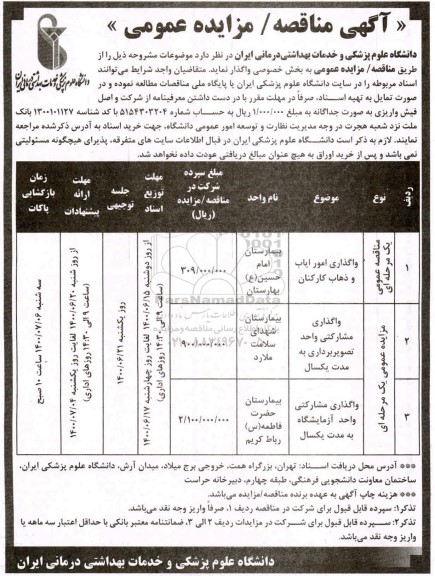 « آگهی مناقصه / مزایده عمومی »
دانشگاه علوم پزشکی و خدمات بهداشتی درمانی ایران
دانشگاه علوم پزشکی و خدمات بهداشتی‌درمانی ایران در نظر دارد موضوعات مشروحه ذیل را از
طریق مناقصه/ مزایده عمومی به بخش خصوصی واگذار نماید. متقاضیان واجد شرایط می‌توانند
اسناد مربوطه را در سایت دانشگاه علوم پزشکی ایران یا پایگاه ملی مناقصات مطالعه نموده و در
صورت تمایل به تهیه اسناد، صرفاً در مهلت مقرر با در دست داشتن معرفینامه از شرکت و اصل
فیش واریزی به صورت جداگانه به مبلغ ۱/۰۰۰/۰۰۰ ریال به حساب شماره ۵۱۵۴۳۰۳۲۰۴ با کد شناسه ۱۳۰۰۱۰۱۱۲۷ بانک
ملت نزد شعبه هجرت در وجه مدیریت نظارت و توسعه امور عمومی دانشگاه، جهت خرید اسناد به آدرس ذکرشده مراجعه
نمایند. لازم به ذکر است دانشگاه علوم پزشکی ایران در قبال اطلاعات سایت های متفرقه، پذیرای هیچگونه مسئولیتی
نمی باشد و پس از خرید اوراق به هیچ عنوان مبالغ دریافتی عودت داده نخواهد شد.
ردیف
نوع
موضوع
نام واحد
مبلغ سپرده شرکت در مناقصه/مزایده (ریال)
مهلت توزیع اسناد
جلسه توجیهی
مهلت ارائه پیشنهادات
زمان بازگشایی پاکات
۱
مناقصه عمومی یک مرحله ای
واگذاری امور ایاب و ذهاب کارکنان
بیمارستان امام حسین(ع) بهارستان
۳۰۹/۰۰۰/۰۰۰
۲
مزایده عمومی یک مرحله ای
واگذاری مشارکتی واحد تصویربرداری به مدت یکسال
بیمارستان شهدای سلامت ملارد
۹۰۰/۰۰۰/۰۰۰
۳
واگذاری مشارکتی واحد آزمایشگاه به مدت یکسال
بیمارستان حضرت فاطمه(س) رباط کریم
۲/۱۰۰/۰۰۰/۰۰۰
از روز دوشنبه ۱۴۰۰/۰۶/۱۵ لغایت روز چهارشنبه ۱۴۰۰/۰۶/۱۷ (ساعت ۹ الی ۱۴:۳۰ روزهای اداری)
روز یکشنبه ۱۴۰۰/۰۶/۲۱
از روز شنبه ۱۴۰۰/۰۶/۲۰ لغایت روز یکشنبه ۱۴۰۰/۰۷/۰۴ (ساعت ۹ الی ۱۴:۳۰ روزهای اداری)
سه شنبه ۱۴۰۰/۰۷/۰۶ ساعت ۱۰ صبح
*** آدرس محل دریافت اسناد: تهران، بزرگراه همت، خروجی برج میلاد، میدان آرش، دانشگاه علوم پزشکی ایران،
ساختمان معاونت دانشجویی فرهنگی، طبقه چهارم، دبیرخانه حراست
*** هزینه چاپ آگهی به عهده برنده مناقصه/مزایده می‌باشد.
تذکر۱: سپرده قابل قبول برای شرکت در مناقصه ردیف ۱، صرفاً واریز وجه نقد می‌باشد.
تذکر۲: سپرده قابل قبول برای شرکت در مزایدات ردیف ۲ الی ۳، ضمانتنامه معتبر بانکی با حداقل اعتبار سه ماهه یا
واریز وجه نقد می‌باشد.
دانشگاه علوم پزشکی و خدمات بهداشتی درمانی ایران